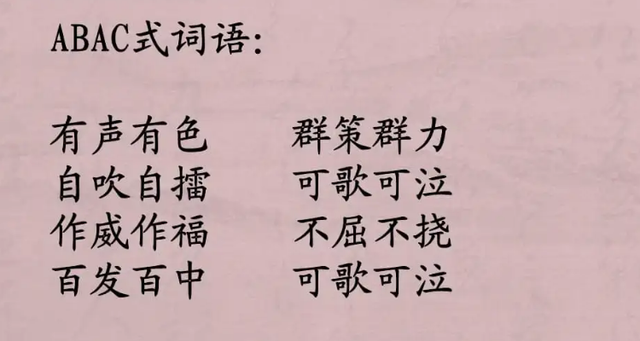 ABAC式词语:
有声有色 群策群力
自吹自擂 可歌可泣
作威作福 不屈不挠
百发百中 可歌可泣